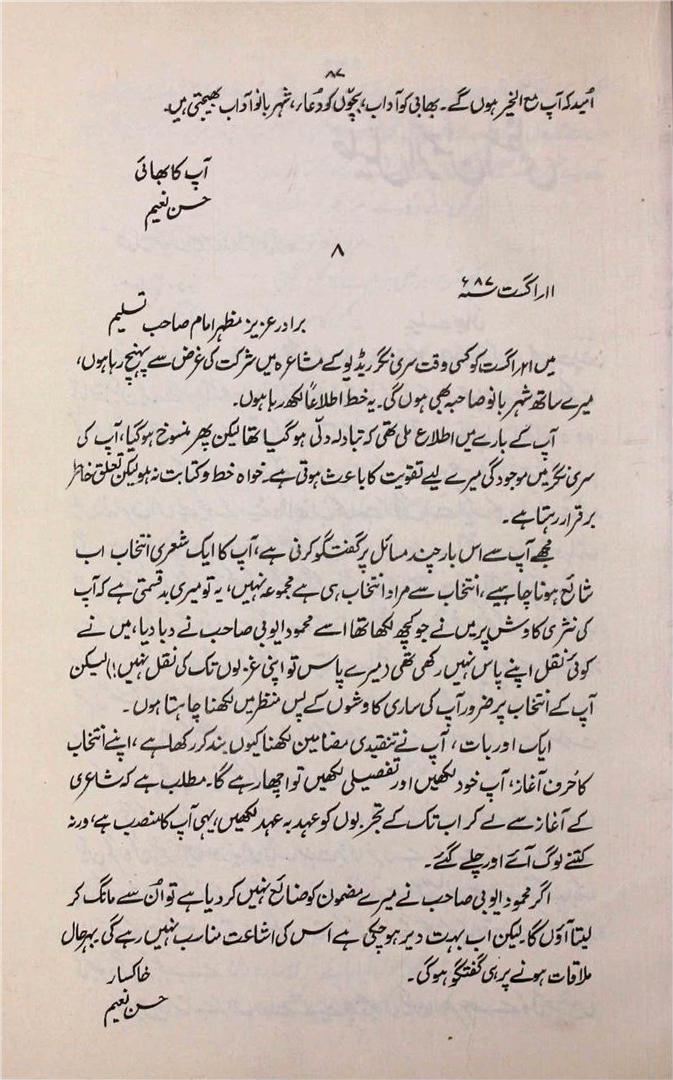 ۸۷
اُمید کہ آپ مع الخیر ہوں گے۔ بھابی کو آداب، بچّوں کو دُعا، شہر بانو آداب بھیجتی ہیں۔
آپ کا بھائی
حسن نعیم
۸
۱۱؍اگست سنہ ۸۷ء
برادر عزیز مظہر امام صاحب تسلیم
میں ۱۲؍اگست کو کسی وقت سری نگر ریڈیو کے مشاعرہ میں شرکت کی غرض سے پہنچ رہا ہوں،
میرے ساتھ شہر بانو صاحبہ بھی ہوں گی۔ یہ خط اطلاعاً لکھ رہا ہوں۔
آپ کے بارے میں اطلاع ملی تھی کہ تبادلہ دلّی ہو گیا تھا لیکن پھر منسوخ ہو گیا، آپ کی
سری نگر میں موجودگی میرے لیے تقویت کا باعث ہوتی ہے۔ خواہ خط و کتابت نہ ہو لیکن تعلق خاطر
برقرار رہتا ہے۔
مجھے آپ سے اس بار چند مسائل پر گفتگو کرنی ہے، آپ کا ایک شعری انتخاب اب
شائع ہونا چاہیے، انتخاب سے مراد انتخاب ہی ہے مجموعہ نہیں، یہ تو میری بدقسمتی ہے کہ آپ
کی نثری کاوش پر میں نے جو کچھ لکھا تھا اسے محمود ایوبی صاحب نے دبا دیا، میں نے
کوئی نقل اپنے پاس نہیں رکھی تھی (میرے پاس تو اپنی غزلوں تک کی نقل نہیں!) لیکن
آپ کے انتخاب پر ضرور آپ کی ساری کاوشوں کے پس منظر میں لکھنا چاہتا ہوں۔
ایک اور بات، آپ نے تنقیدی مضامین لکھنا کیوں بند کر رکھا ہے، اپنے انتخاب
کا حُرف آغاز، آپ خود لکھیں اور تفصیلی لکھیں تو اچھا رہے گا۔ مطلب ہے کہ شاعری
کے آغاز سے لے کر اب تک کے تجربوں کو عہد بہ عہد لکھیں، یہی آپ کا منصب ہے، ورنہ
کتنے لوگ آئے اور چلے گئے۔
اگر محمود ایوبی صاحب نے میرے مضمون کو ضائع نہیں کر دیا ہے تو اُن سے مانگ کر
لیتا آؤں گا۔ لیکن اب بہت دیر ہو چکی ہے اس کی اشاعت مناسب نہیں رہے گی بہرحال
ملاقات ہونے پر ہی گفتگو ہوگی۔
خاکسار
حسن نعیم